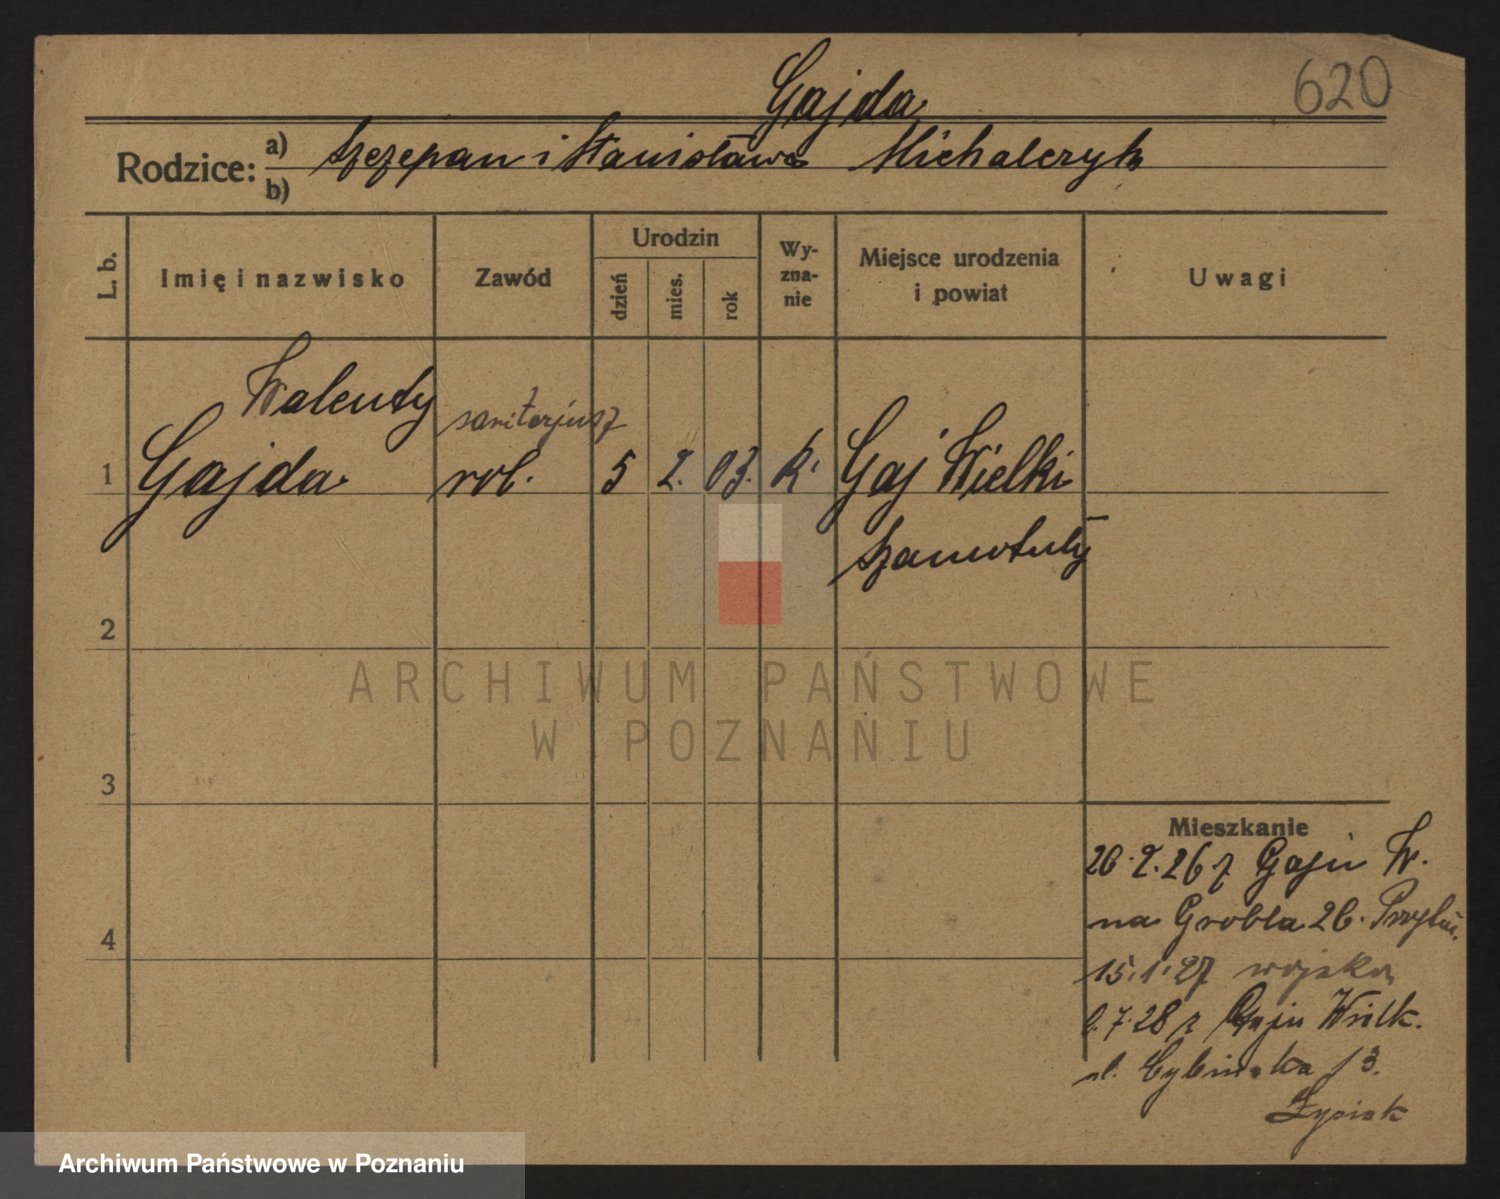 620
Gajda
Rodzice: a) Szczepan i Stanisława Michalczyk
b)
L. b.
Imię i nazwisko
Zawód
Urodzin
dzień
mies.
rok
Wy-
zna-
nie
Miejsce urodzenia
i powiat
Uwagi
Walenty
sanitarjusz
1 Gajda rob. 5 2. 03. k. Gaj Wielki
Szamotuły
2
ARCHIWUM PAŃSTWOWE
W POZNANIU
3
Mieszkanie
26.2.26 z Gaju W.
na Grobla 26.
4
15.1.27 wojska
7.28 z Gaju Wielk.
ul. Cybińska 13.
Archiwum Państwowe w Poznaniu